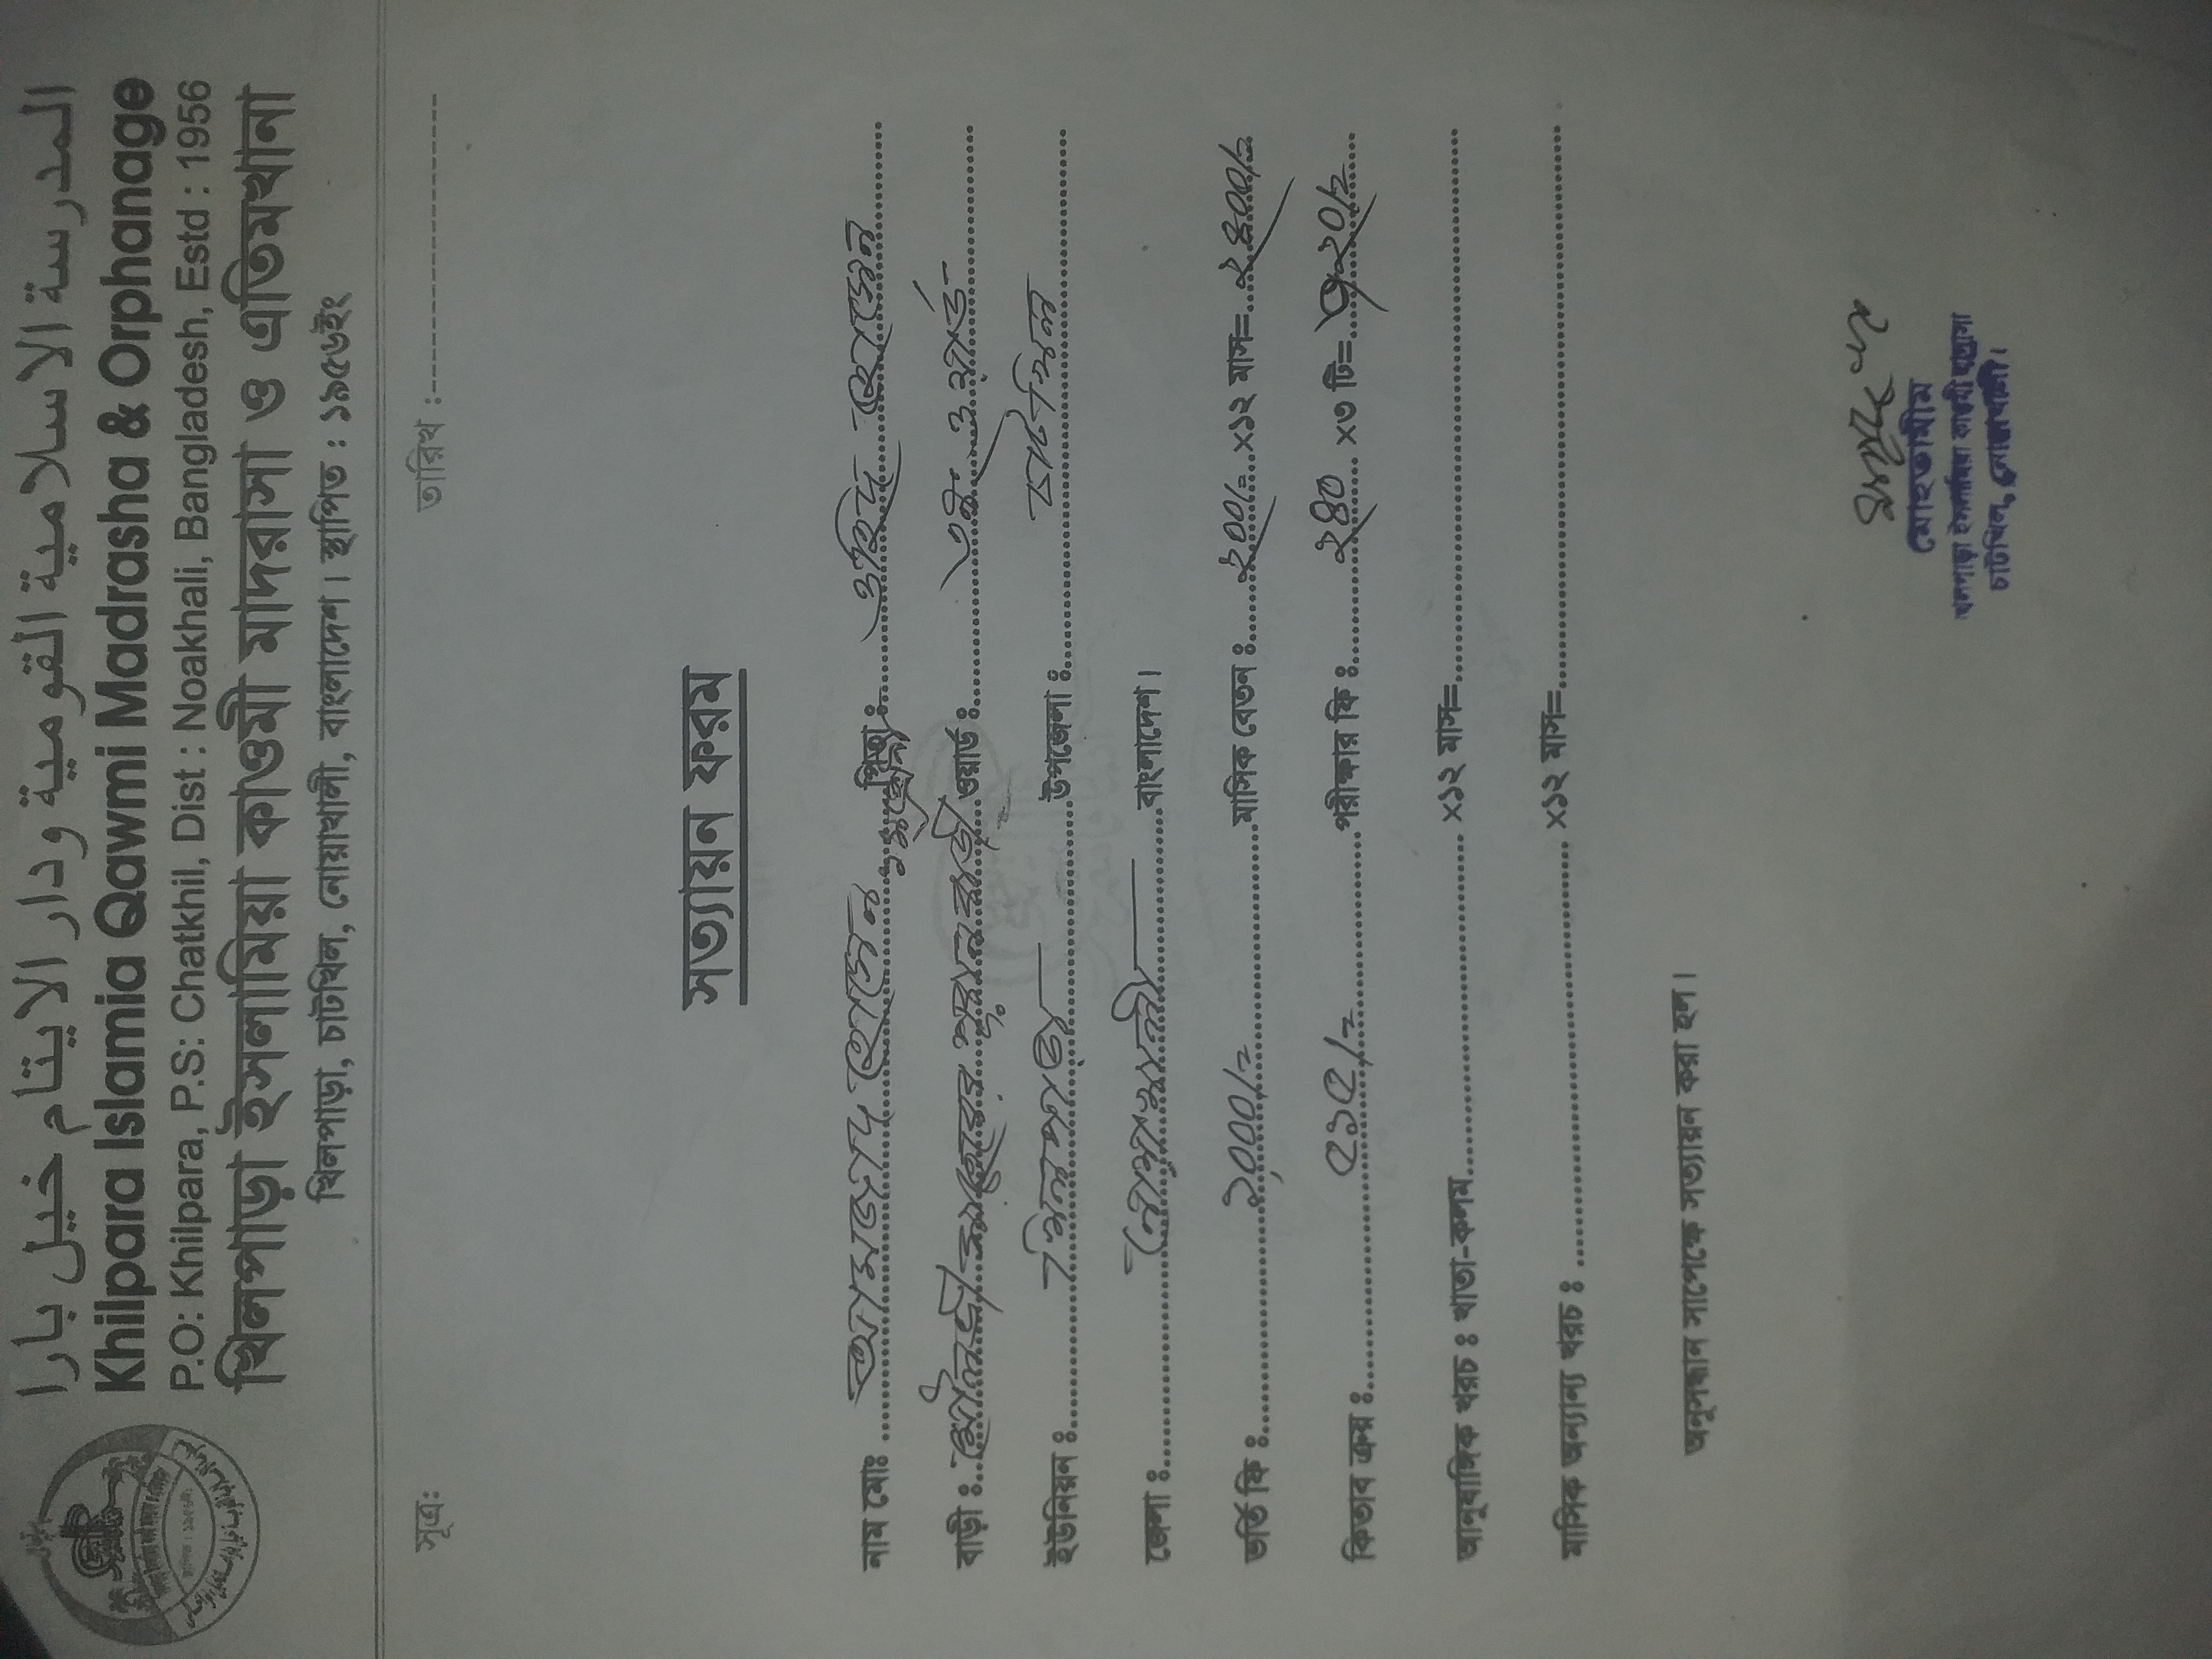 المدرسة الاسلامية القومية ودار الايتام خيل بارا
Khilpara Islamia Qawmi Madrasha & Orphanage
P.O: Khilpara, P.S: Chatkhil, Dist : Noakhali, Bangladesh, Estd : 1956
খিলপাড়া ইসলামিয়া কাওমী মাদরাসা ও এতিমখানা
খিলপাড়া, চাটখিল, নোয়াখালী, বাংলাদেশ। স্থাপিত : ১৯৫৬ইং
স্থাপিত : ১৯৫৬ইং
সূত্র: তারিখ :--------------------
সত্যায়ন ফরম
নাম মোঃ আমজাদ হোসেন পিতা ঃ ওহিদ হোসেন
১ম শ্রেনী
বাড়ী ঃ মৌলভী সাহেবের পুরান বাড়ী ওয়ার্ড ঃ ৩নং ওয়ার্ড
ইউনিয়ন ঃ খিলপাড়া উপজেলা ঃ চাটখিল
জেলা ঃ নোয়াখালী বাংলাদেশ।
ভর্তি ফি ঃ ১,০০০/= মাসিক বেতন ঃ ২০০/= ×১২ মাস= ২৪০০/=
কিতাব ক্রয় ঃ ৫১৫/= পরীক্ষার ফি ঃ ২৪০ ×৩ টি= ৭২০/=
আনুষাঙ্গিক খরচ ঃ খাতা-কলম ×১২ মাস=
মাসিক অন্যান্য খরচ ঃ ×১২ মাস=
অনুসন্ধান সাপেক্ষে সত্যায়ন করা হল।
মোহতামীম
খিলপাড়া ইসলামিয়া কাওমী মাদ্রাসা
চাটখিল, নোয়াখালী।